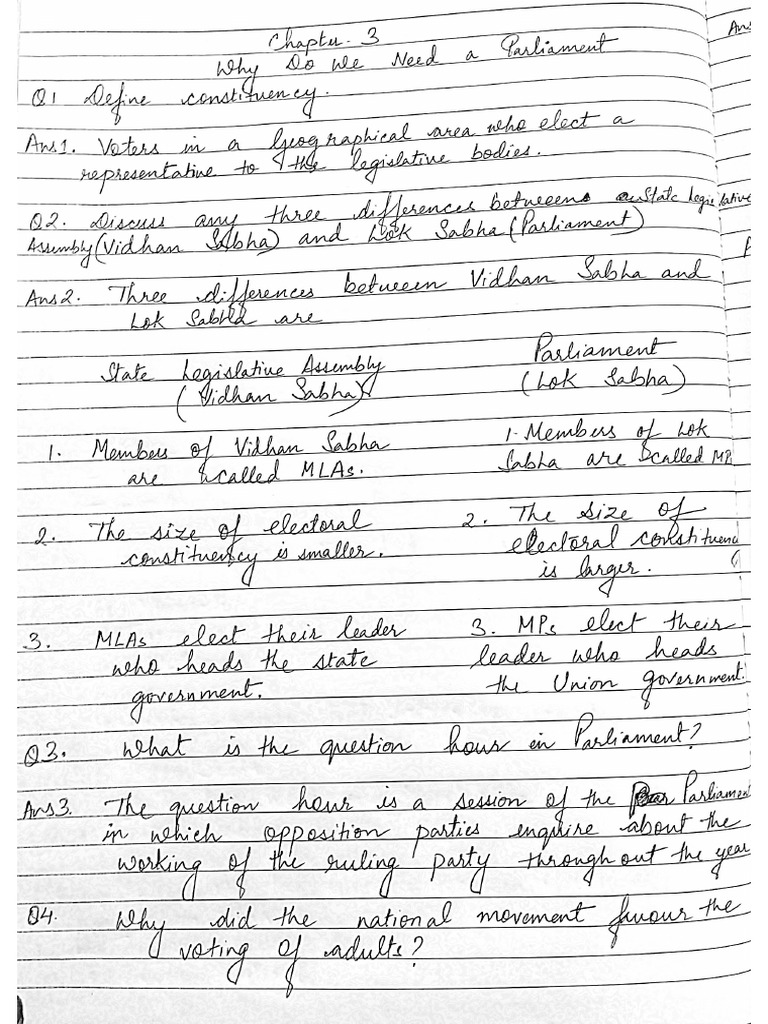 Chapter - 3
Why Do We Need a Parliament
Q1 Define constituency.
Ans1. Voters in a Geographical area who elect a
representative to the legislative bodies.
Q2. Discuss any three differences between State Legislative
Assembly (Vidhan Sabha) and Lok Sabha (Parliament)
Ans2. Three differences between Vidhan Sabha and
Lok Sabha are
State Legislative Assembly Parliament
(Vidhan Sabha) (Lok Sabha)
1. Members of Vidhan Sabha 1. Members of Lok
are called MLAs. Sabha are called MP
2. The size of electoral 2. The size of
constituency is smaller. electoral constituenc
is larger.
3. MLAs elect their leader 3. MPs elect their
who heads the state leader who heads
government. the Union government.
Q3. What is the question hour in Parliament?
Ans3. The question hour is a session of the Parliament
in which opposition parties enquire about the
working of the ruling party throughout the year
Q4. Why did the national movement favour the
voting of adults?
Ans